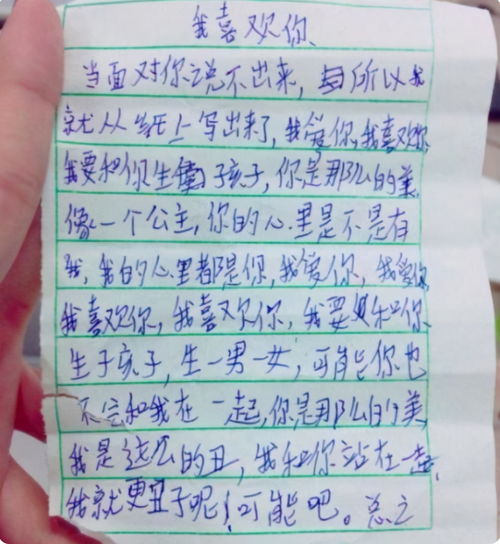 我喜欢你、
当面对你说不出来，所以我
就从纸上写出来了，我爱你，我喜欢你
我要和你生子孩子，你是那么的美，
像一个公主，你的心里是不是有
我，我的心里都是你，我爱你，我爱你
我喜欢你，我喜欢你，我要和你、
生子孩子，生一男一女，可能你也
不会和我在一起，你是那么的美
我是这么的丑，我和你站在一起，
我就更丑了呢！可能吧。总之